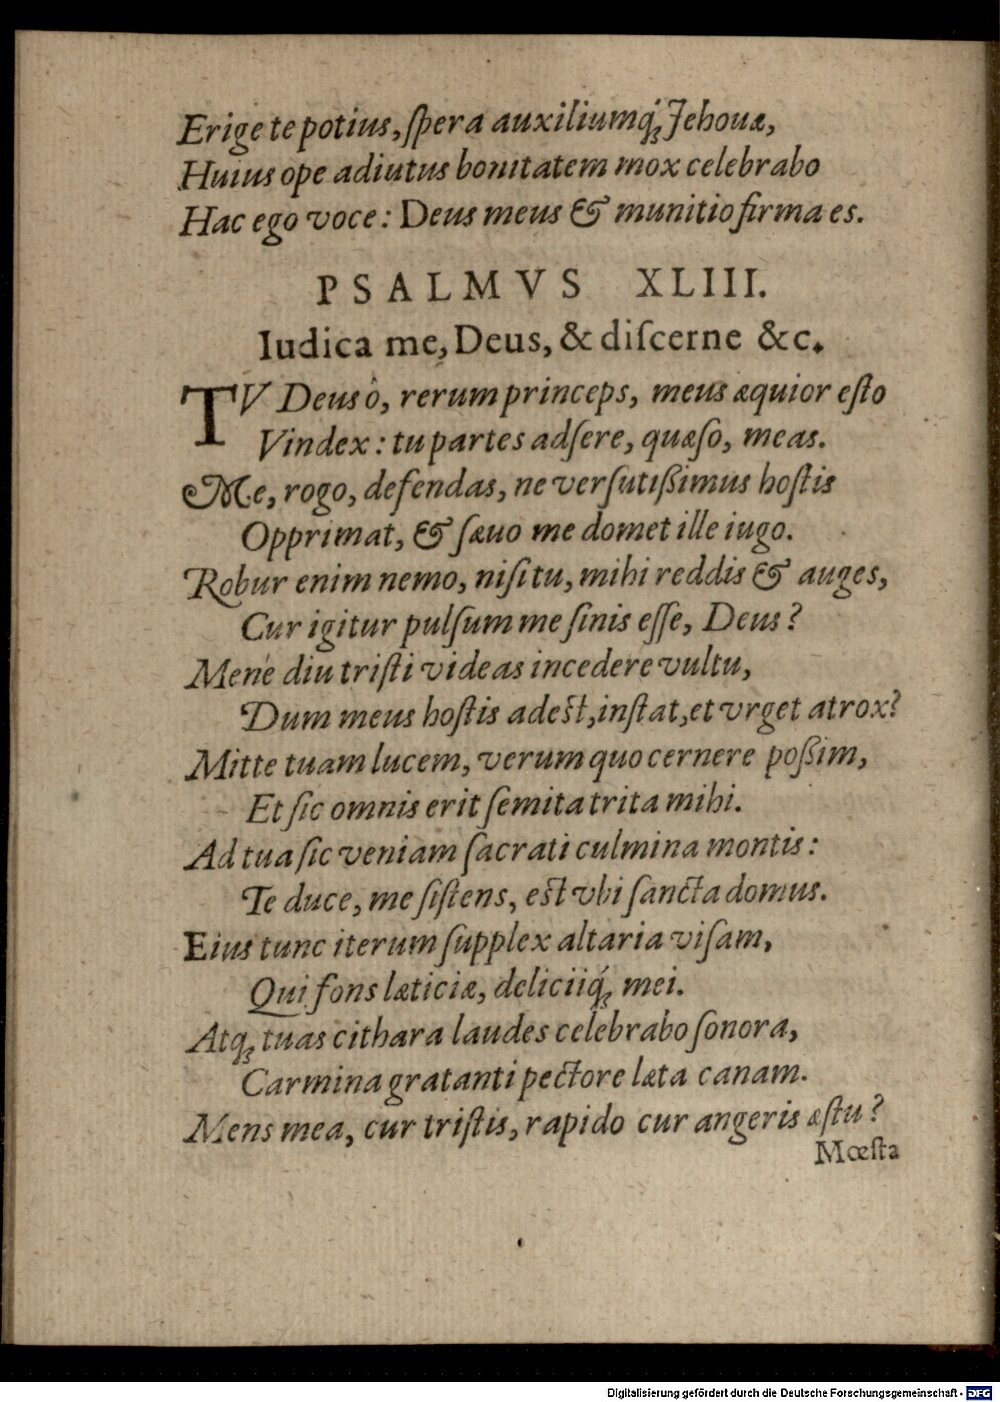 Erige te potius, ſpera auxiliumq́ꝫ Jehouæ,
Huius ope adiutus bonitatem mox celebrabo
Hac ego voce: Deus meus & munitio firma es.
PSALMVS XLIII.
Iudica me, Deus, & diſcerne &c.
TV Deus ô, rerum princeps, meus æquior eſto
Vindex: tu partes adſere, quæſo, meas.
Me, rogo, defendas, ne verſutißimus hoſtis
Opprimat, & ſæuo me domet ille iugo.
Robur enim nemo, niſi tu, mihi reddis & auges,
Cur igitur pulſum me ſinis eſſe, Deus?
Mené diu triſti videas incedere vultu,
Dum meus hoſtis adeſt, inſtat, et vrget atrox?
Mitte tuam lucem, verum quo cernere poßim,
Et ſic omnis erit ſemita trita mihi.
Ad tua ſic veniam ſacrati culmina montis:
Te duce, me ſiſtens, eſt vbi ſancta domus.
Eius tunc iterum ſupplex altaria viſam,
Qui fons læticiæ, deliciiq́ꝫ mei.
Atqꝫ tuas cithara laudes celebrabo ſonora,
Carmina gratanti pectore læta canam.
Mens mea, cur triſtis, rapido cur angeris æſtu?
Mœſta
Digitalisierung gefördert durch die Deutsche Forschungsgemeinschaft - DFG